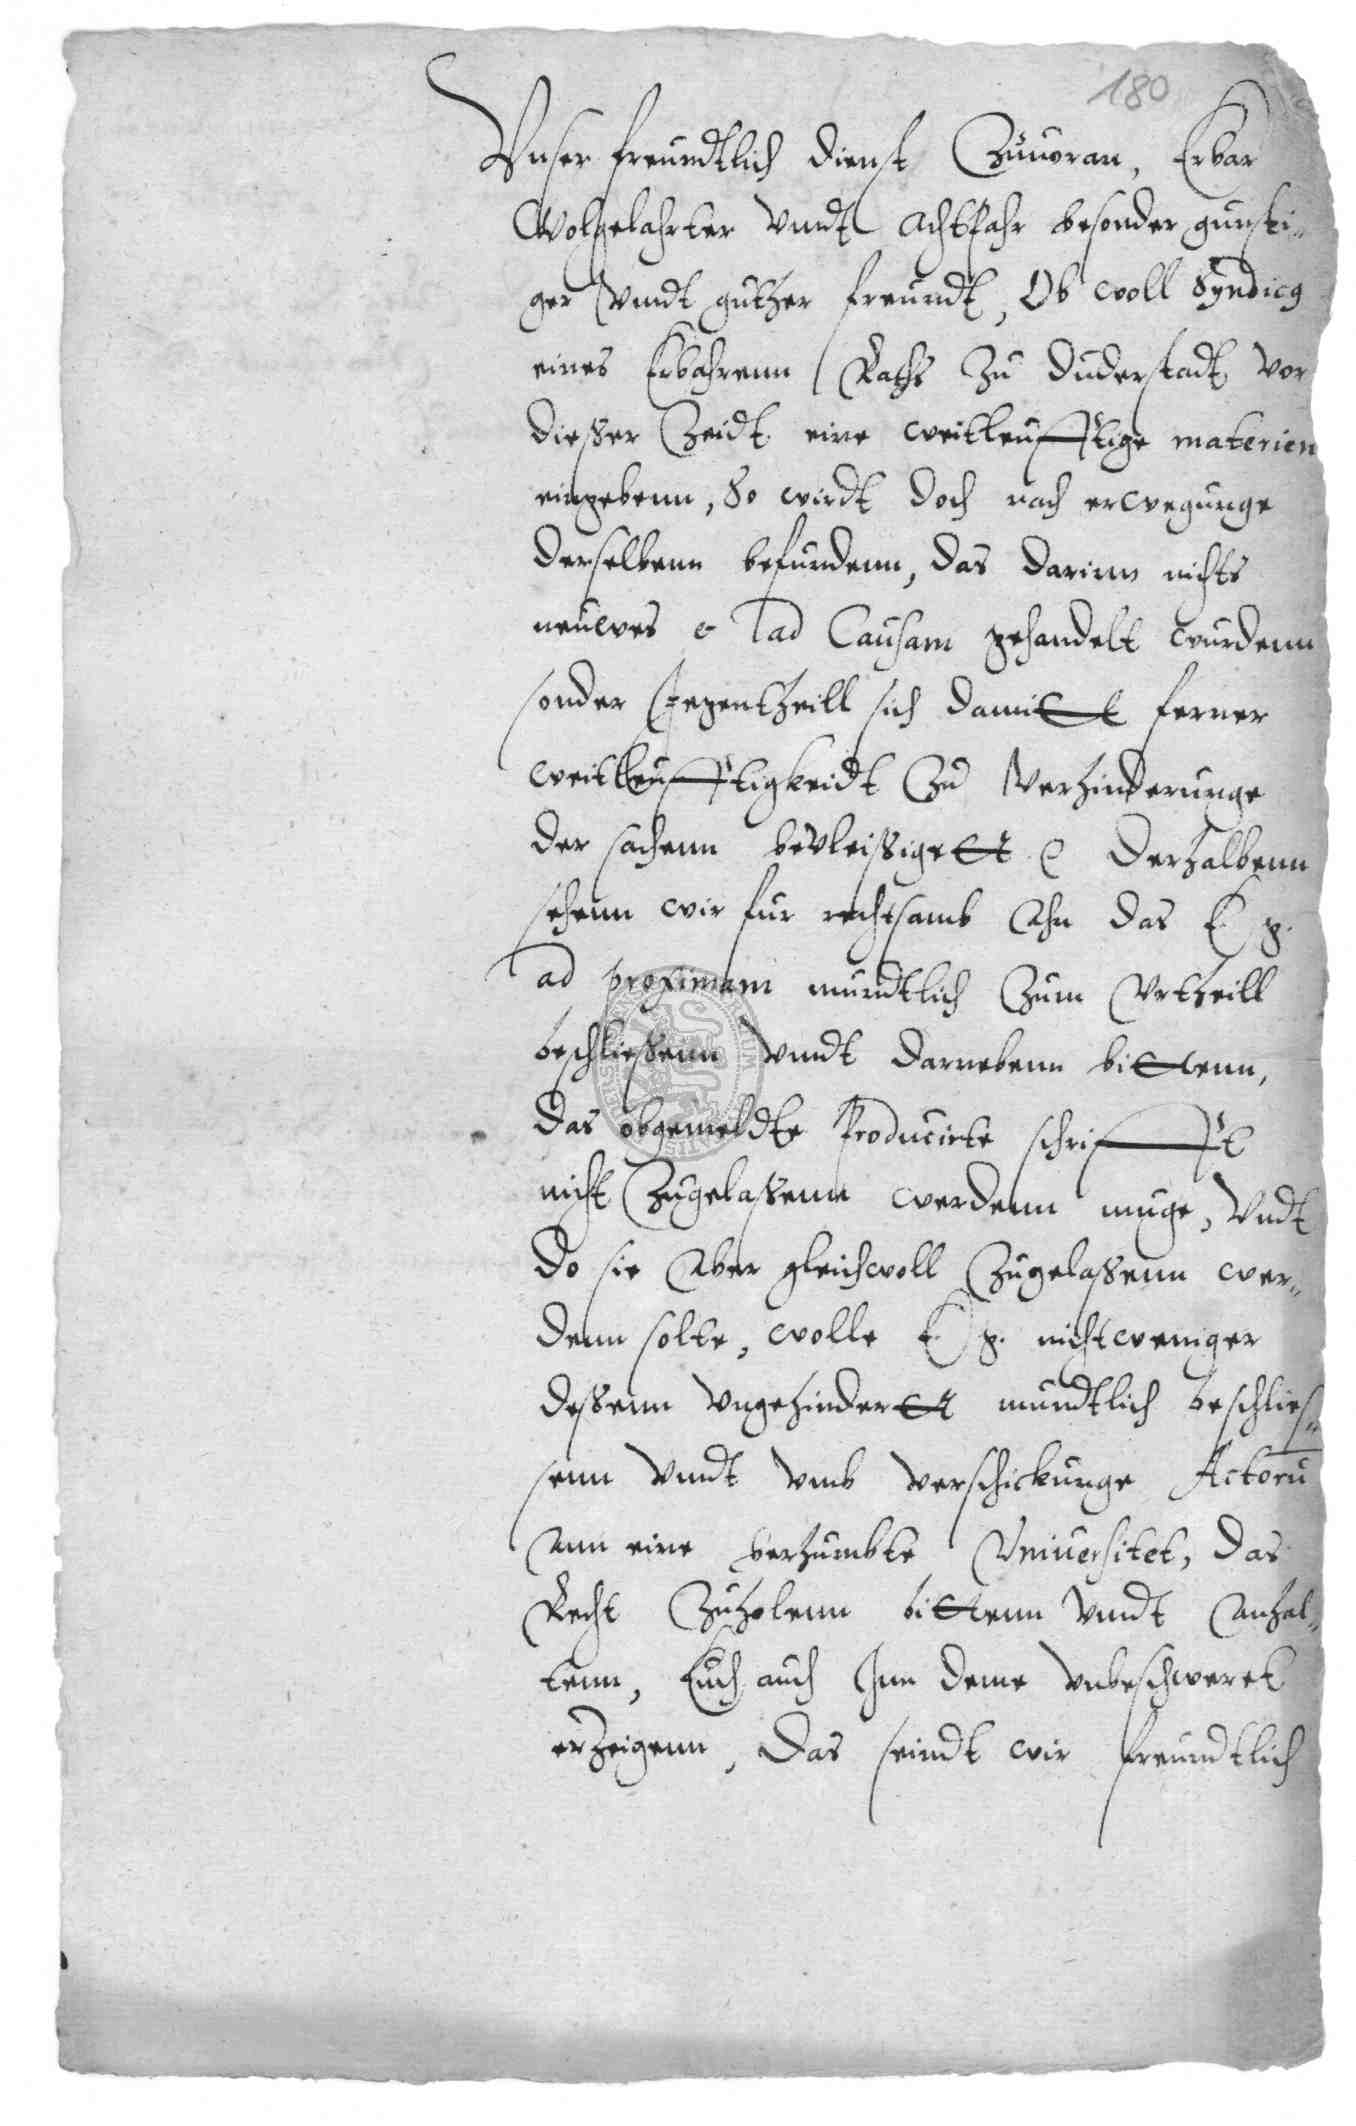 180
Vnser freundtlich dienst Zuuoran, Erbar
Wolgelahrter vnndt achtpahr besonder gunsti„
ger vnndt guther freundt, Ob woll Syndicq
eines Erbahrenn Raths zu Duderstadt vor
dießer Zeidt eine weitleufftige materien
eingebenn, So wirdt doch nach erwegunge
derselbenn befundenn, das darinn nichts
neuwes ad Causam gehandelt wurdenn
sonder Jegentheill sich damitt ferner
weitleufftigkeidt zu verhinderunge
der sachenn bevleissigett Derhalbenn
sehenn wir fur rechtsamb ahn das E. g.
ad proximam mundtlich zum Vrtheill
beschließenn vnndt darnebenn bittenn,
das obgemeldte Producirte schrifft
nicht zugelaßenn werdenn muge, Vndt
do sie aber gleichwoll zugelaßenn wer„
denn solte, wolle E. g. nichtweniger
deßenn vngehindertt mundtlich beschlies„
senn vnndt vmb verschickunge Actorū
ann eine berhumbte Vniuersitet, das
Recht zuholenn bittenn vnndt anhal„
tenn, Euch auch Inn deme vnbeschweret
erzeigenn, Das seindt wir freundtlich